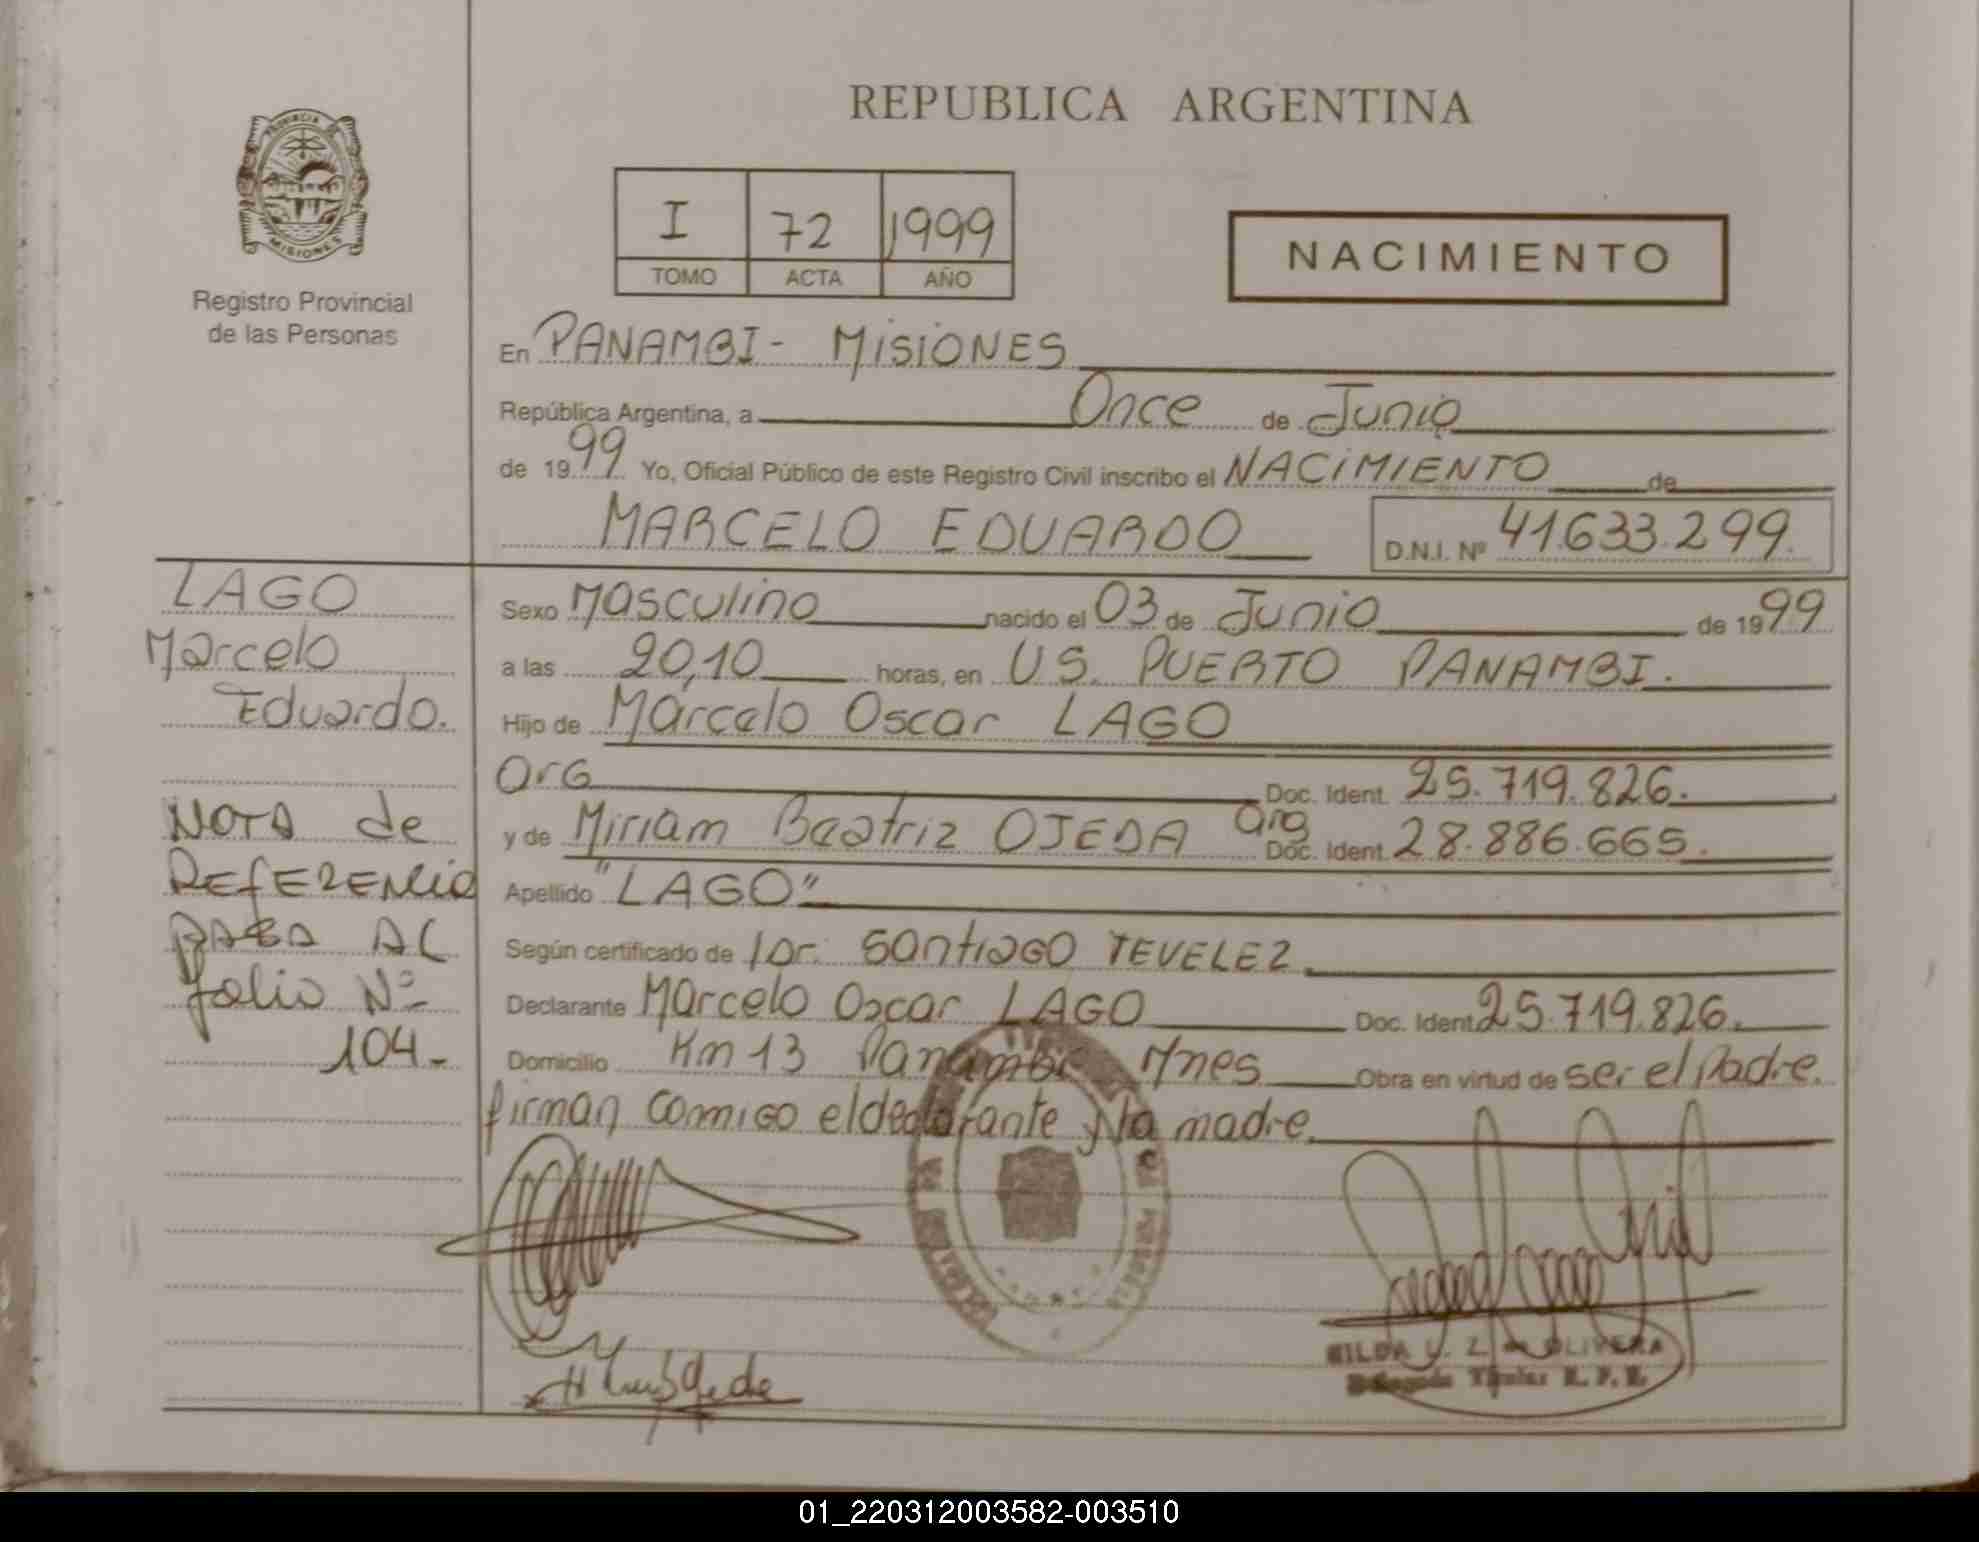 REPUBLICA ARGENTINA
PROVINCIA DE
MISIONES
Registro Provincial
de las Personas
I 72 1999
TOMO ACTA AÑO
NACIMIENTO
En PANAMBI - MISIONES
República Argentina, a Once de Junio
de 1999 Yo, Oficial Público de este Registro Civil inscribo el NACIMIENTO de
MARCELO EDUARDO D.N.I. Nº 41.633.299.
LAGO
Marcelo
Eduardo.
NOTA de
REFERENCIA
PARA AL
folio Nº
104-
Sexo Masculino nacido el 03 de Junio de 1999
a las 20,10 horas, en U.S. PUERTO PANAMBI.
Hijo de Marcelo Oscar LAGO
Arg Doc. Ident. 25.719.826.
y de Miriam Beatriz OJEDA Arg Doc. Ident. 28.886.665.
Apellido "LAGO"
Según certificado de /Dr. Santiago TEVELEZ
Declarante Marcelo Oscar LAGO Doc. Ident. 25.719.826.
Domicilio Km 13 Panambi Mnes Obra en virtud de ser el Padre.
firman conmigo el declarante y la madre.
HILDA Z. de OLIVERA
Delegada Titular R. P. P.
01_220312003582-003510